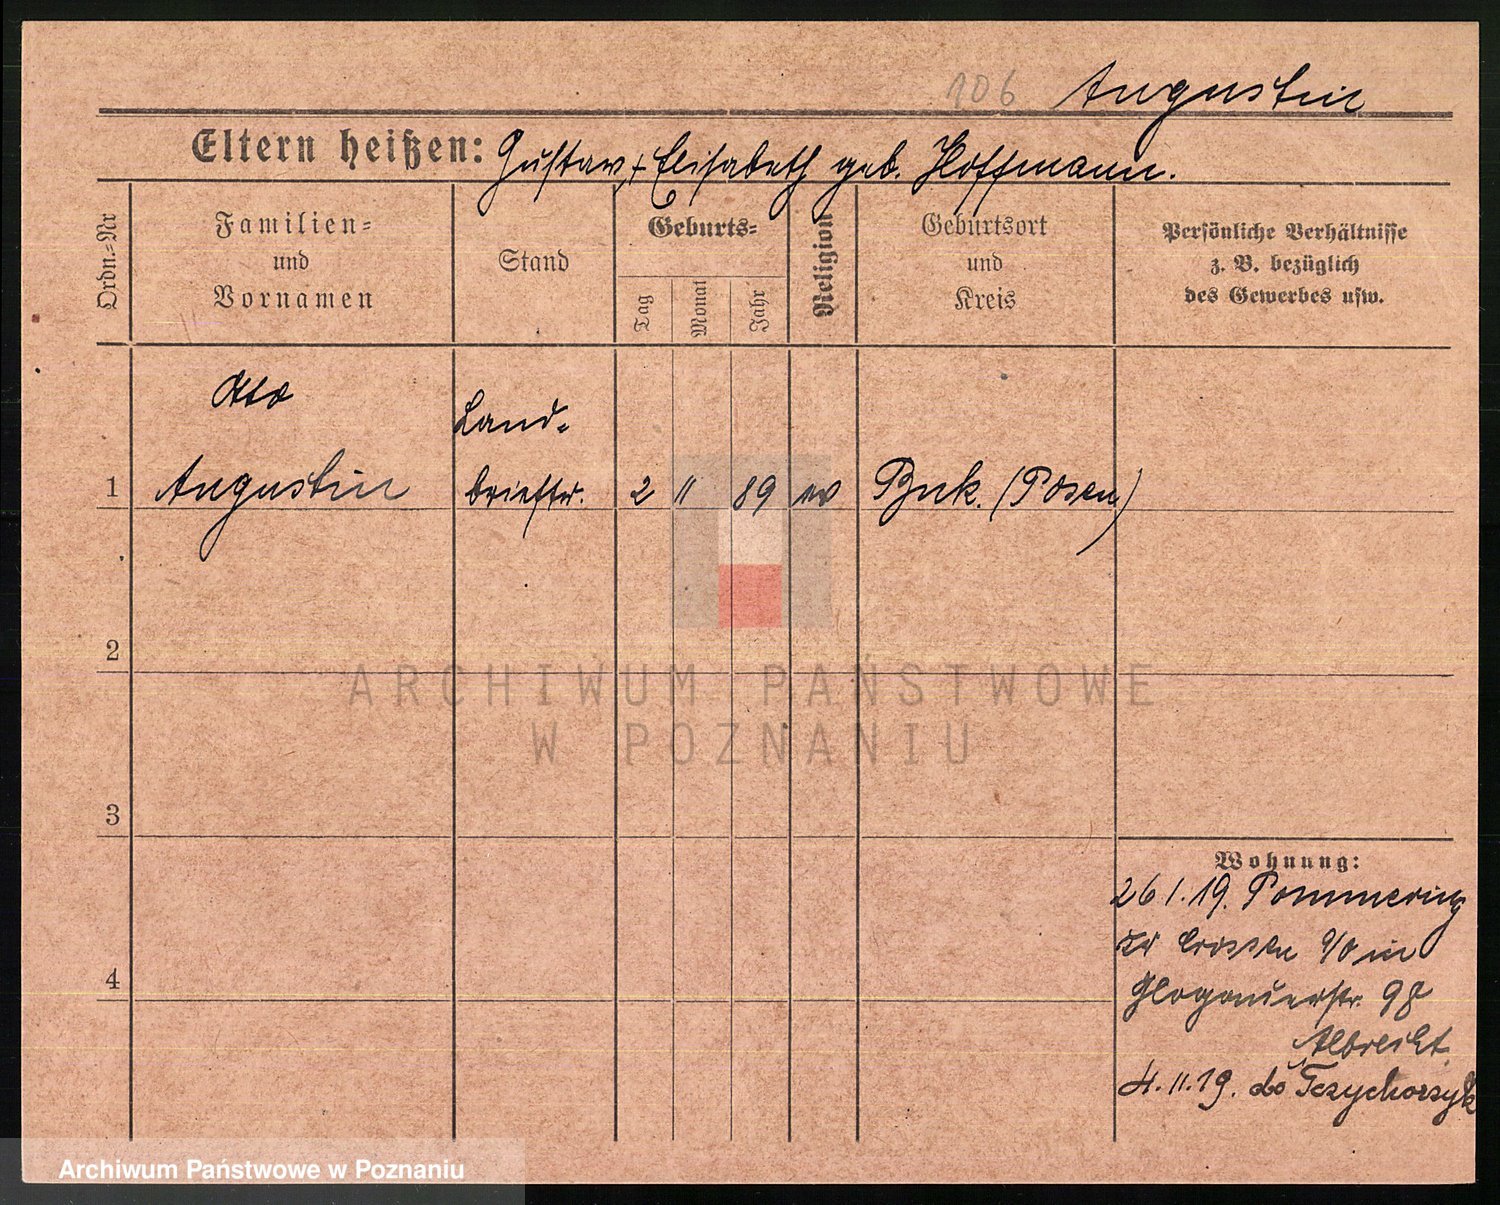 106 Augustin
Eltern heißen: Gustav, + Elisabeth geb. Hoffmann.
Ordn.=Nr
Familien=
und
Vornamen
Stand
Geburts=
Tag
Monat
Jahr
Religion
Geburtsort
und
Kreis
Persönliche Verhältnisse
z. B. bezüglich
des Gewerbes usw.
Otto
Land=
1 Augustin brieftr. 2 11 89 ev Buk. (Posen)
2
ARCHIWUM PAŃSTWOWE
W POZNANIU
3
Wohnung:
26 1. 19. Pommering
Kr Crossen a/O in
4
Glogauerstr. 98
Albrecht
4. 11. 19. do
Archiwum Państwowe w Poznaniu